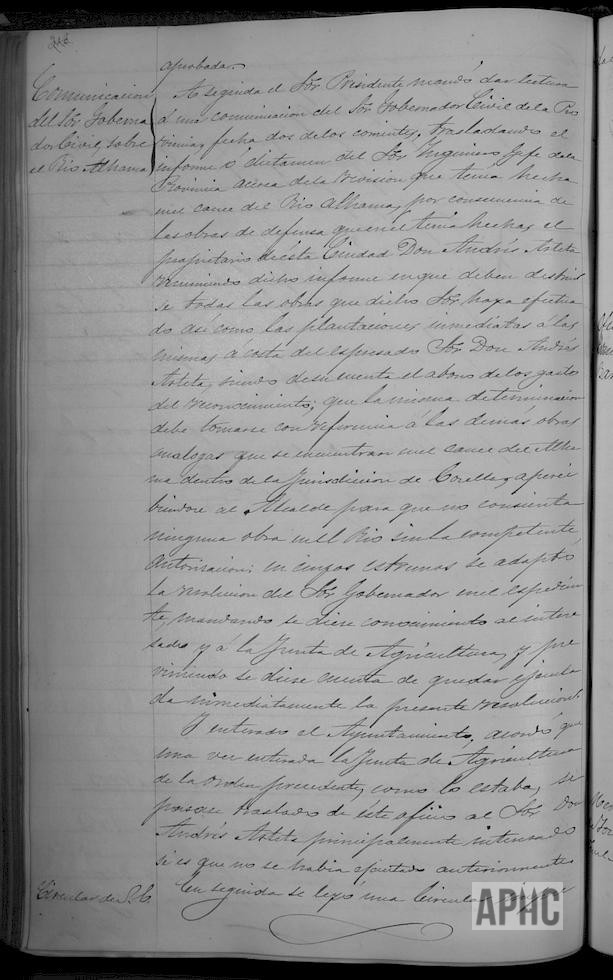 aprobada.
Comunicacion
del Sor Goberna
dor Civil, sobre
el Rio Alhama
A seguida el Sor Presidente mandó dar lectura
á una comunicacion del Sor Gobernador Civil de la Pro
vincia, fecha dos de los corrientes, trasladando el
informe o dictamen del Sor Ingeniero Jefe de la
Provincia acerca de la revision que tenia hecha
en el cauce del Rio Alhama, por consecuencia de
las obras de defensa que en el tenia hechas el
propietario de esta Ciudad Don Andrés Arteta
resumiendo dicho informe en que deben destruir
se todas las obras que dicho Sor haya efectua
do asi como las plantaciones inmediatas á las
mismas á costa del espresado Sor Don Andrés
Arteta, siendo de su cuenta el abono de los gastos
del reconocimiento; que la misma determinacion
debe tomarse con referencia á las demás obras
analogas que se encuentran en el cauce del Alha
ma dentro de la Jurisdiccion de Corella, aperci
biendose al Alcalde para que no consienta
ninguna obra en el Rio sin la competente
autorizacion; en cuyos estremos se adoptó
la resolucion del Sor Gobernador en el espedien
te, mandando se diese conocimiento al intere
sado y á la Junta de Agricultura, y pre
viniendo se diese cuenta de quedar ejecuta
da inmediatamente la presente resolucion.
Y enterado el Ayuntamiento, acordó que
una vez enterada la Junta de Agricultura
de la orden precedente, como lo estaba, se
pasase traslado de éste oficio al Sor Don
Andrés Arteta principalmente interesado
si es que no se habia ejecutado anteriormente.
Circular de
En seguida se leyó una Circular
APHC